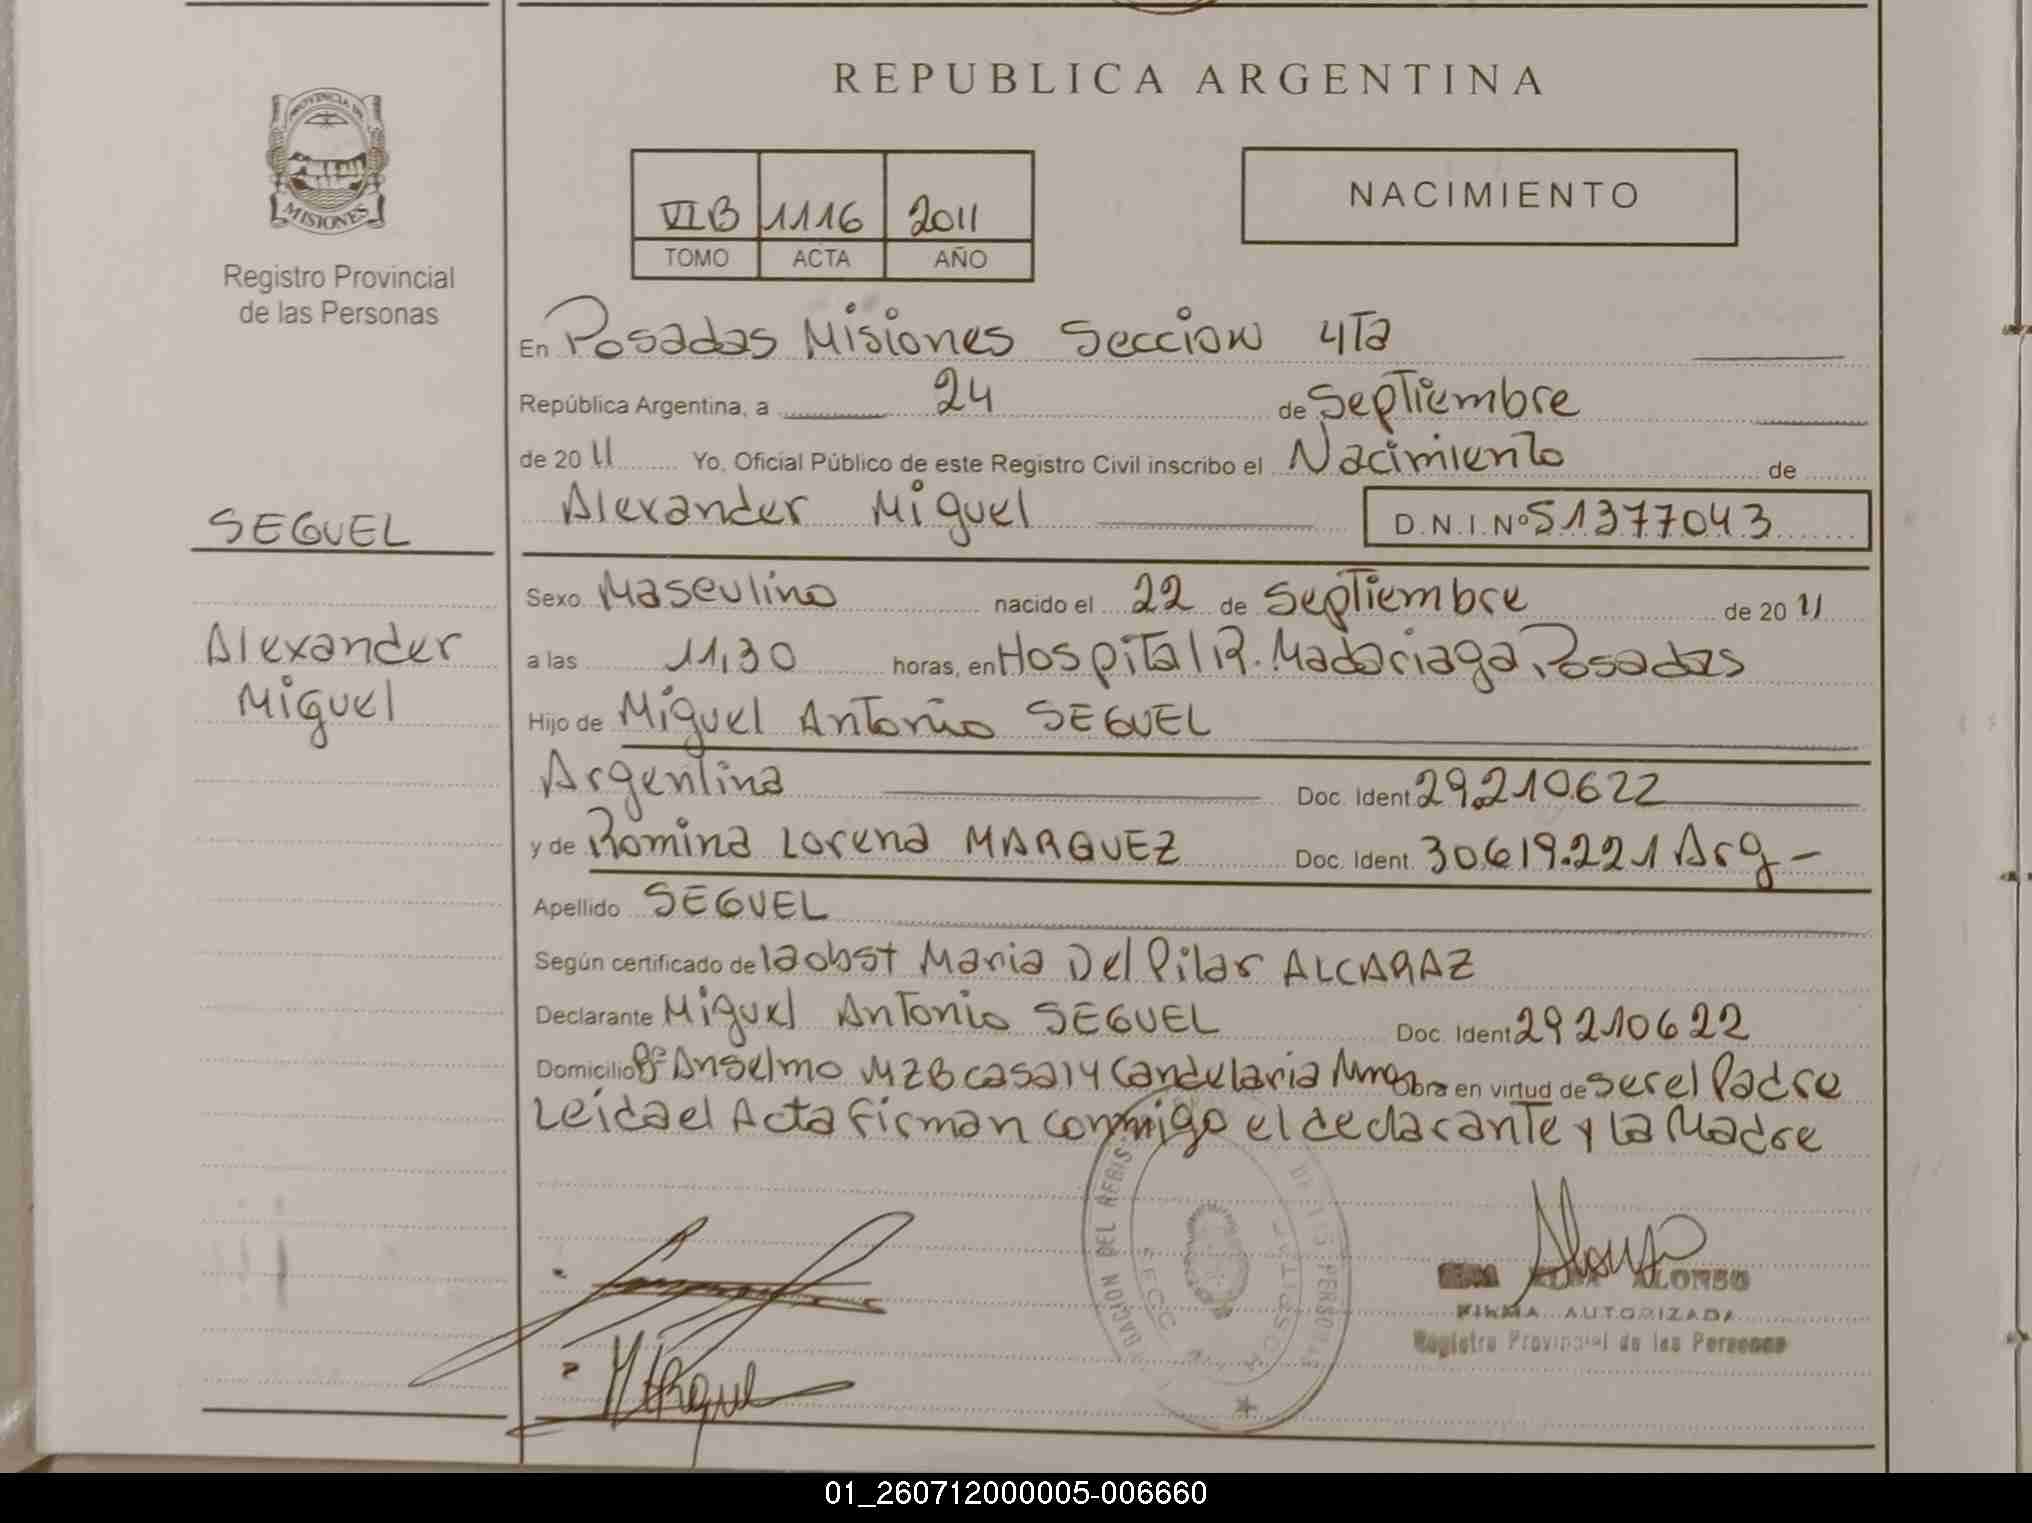 REPUBLICA ARGENTINA
PROVINCIA DE
MISIONES
Registro Provincial
de las Personas
VI B 1116 2011
TOMO ACTA AÑO
NACIMIENTO
En Posadas Misiones Seccion 4Ta
República Argentina, a 24 de Septiembre
de 2011 Yo, Oficial Público de este Registro Civil inscribo el Nacimiento de
Alexander Miguel D.N.I.Nº 51377043
SEGUEL
Alexander
Miguel
Sexo Masculino nacido el 22 de Septiembre de 2011
a las 11,30 horas, en Hospital R. Madariaga, Posadas
Hijo de Miguel Antonio SEGUEL
Argentina Doc. Ident. 29.210.622
y de Romina Lorena MARQUEZ Doc. Ident. 30.619.221 Arg -
Apellido SEGUEL
Según certificado de la obst Maria Del Pilar ALCARAZ
Declarante Miguel Antonio SEGUEL Doc. Ident 29210622
Domicilio Bº Anselmo MZB casa 14 Candelaria Mnes Obra en virtud de ser el Padre
Leida el Acta firman conmigo el declarante y la Madre
DEL REGIS
PERSONAS
ALONSO
FIRMA AUTORIZADA
Registro Provincial de las Personas
01_260712000005-006660